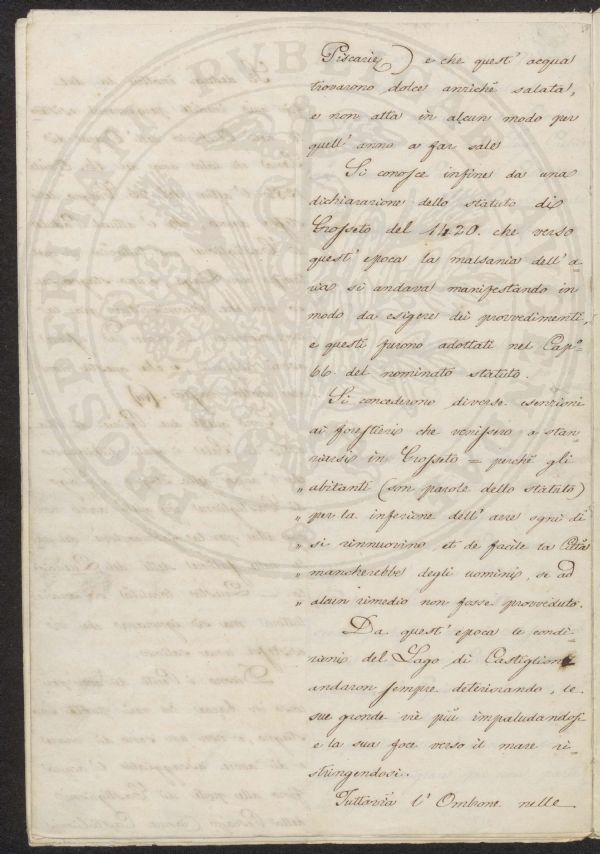 Piscarie) e che quest' acqua
trovarono dolce anziché salata,
e non atta in alcun modo per
quell' anno a far sale
Si conosce infine da una
dichiarazione dello statuto di
Grosseto del 1420. che verso
quest' epoca la malsania dell' a-
ria si andava manifestando in
modo da esigere dei provvedimenti,
e questi furono adottati nel Cap.º
66. del nominato statuto.
Si concederono diverse esenzioni
ai forestieri che venissero a stan-
ziarsi in Grosseto = perché gli
" abitanti (son parole dello statuto)
" per la infezione dell' aere ogni dì
" si rinnuovino, et de facile la Città
" mancherebbe degli uomini, se ad
" alcun rimedio non fosse provveduto.
Da quest' epoca le condi-
zioni del Lago di Castiglione
andaron sempre deteriorando, le
sue gronde vie più impaludandosi
e la sua foce verso il mare ri-
stringendosi.
Tuttavia l' Ombrone nelle